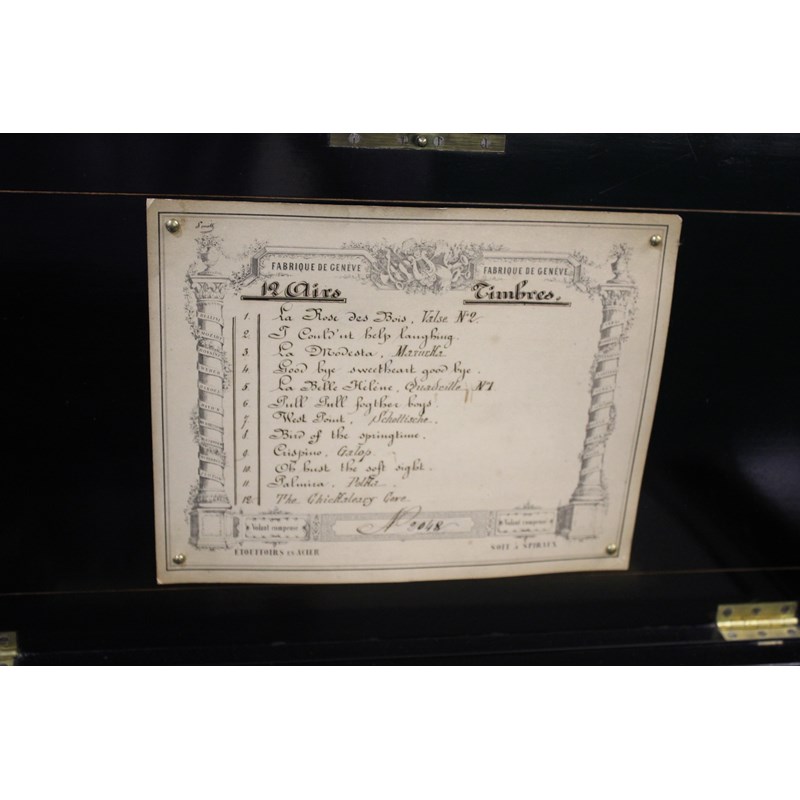 FABRIQUE DE GENÈVE
FABRIQUE DE GENÈVE
12 Airs
Timbres.
1. La Rose des Bois, Valse No 2.
2. I Could'nt help laughing.
3. La Modesta,
4. Good bye sweetheart good bye.
5. La Belle Hélène, Quadrille No 1
6. Pull Pull fogther boys.
7. West Point, Schottische.
8. Bird of the springtime.
9. Crispino, Galop.
10. Oh hust the soft sight.
11. Palmira, Polka.
12. The Chickaleary Cove.
Volant compensé
No 2048
Volant compensé
ETOUFFOIRS EN ACIER
SOIT à SPIRAUX